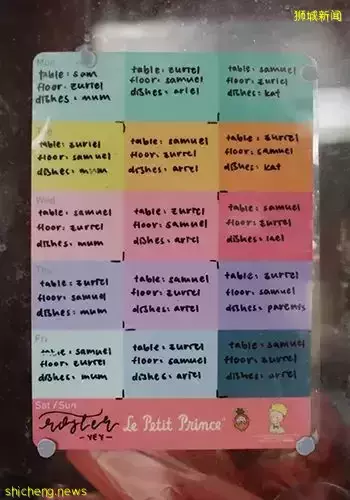 狮城新闻
Mon
table: sam
floor: zuriel
dishes: mum
table: zuriel
floor: samuel
dishes: ariel
table: samuel
floor: zuriel
dishes: kat
Tue
table: zuriel
floor: samuel
dishes: mum
table: samuel
floor: zuriel
dishes: ariel
table: zuriel
floor: samuel
dishes: kat
Wed
table: samuel
floor: zuriel
dishes: mum
table: zuriel
floor: samuel
dishes: ariel
table: samuel
floor: zuriel
dishes: lael
Thu
table: zuriel
floor: samuel
dishes: mum
table: samuel
floor: zuriel
dishes: ariel
table: zuriel
floor: samuel
dishes: parents
Fri
table: samuel
floor: zuriel
dishes: mum
table: zuriel
floor: samuel
dishes: ariel
table: samuel
floor: zuriel
dishes: ariel
Sat / Sun
roster
- YEY -
Le Petit Prince
shicheng.news